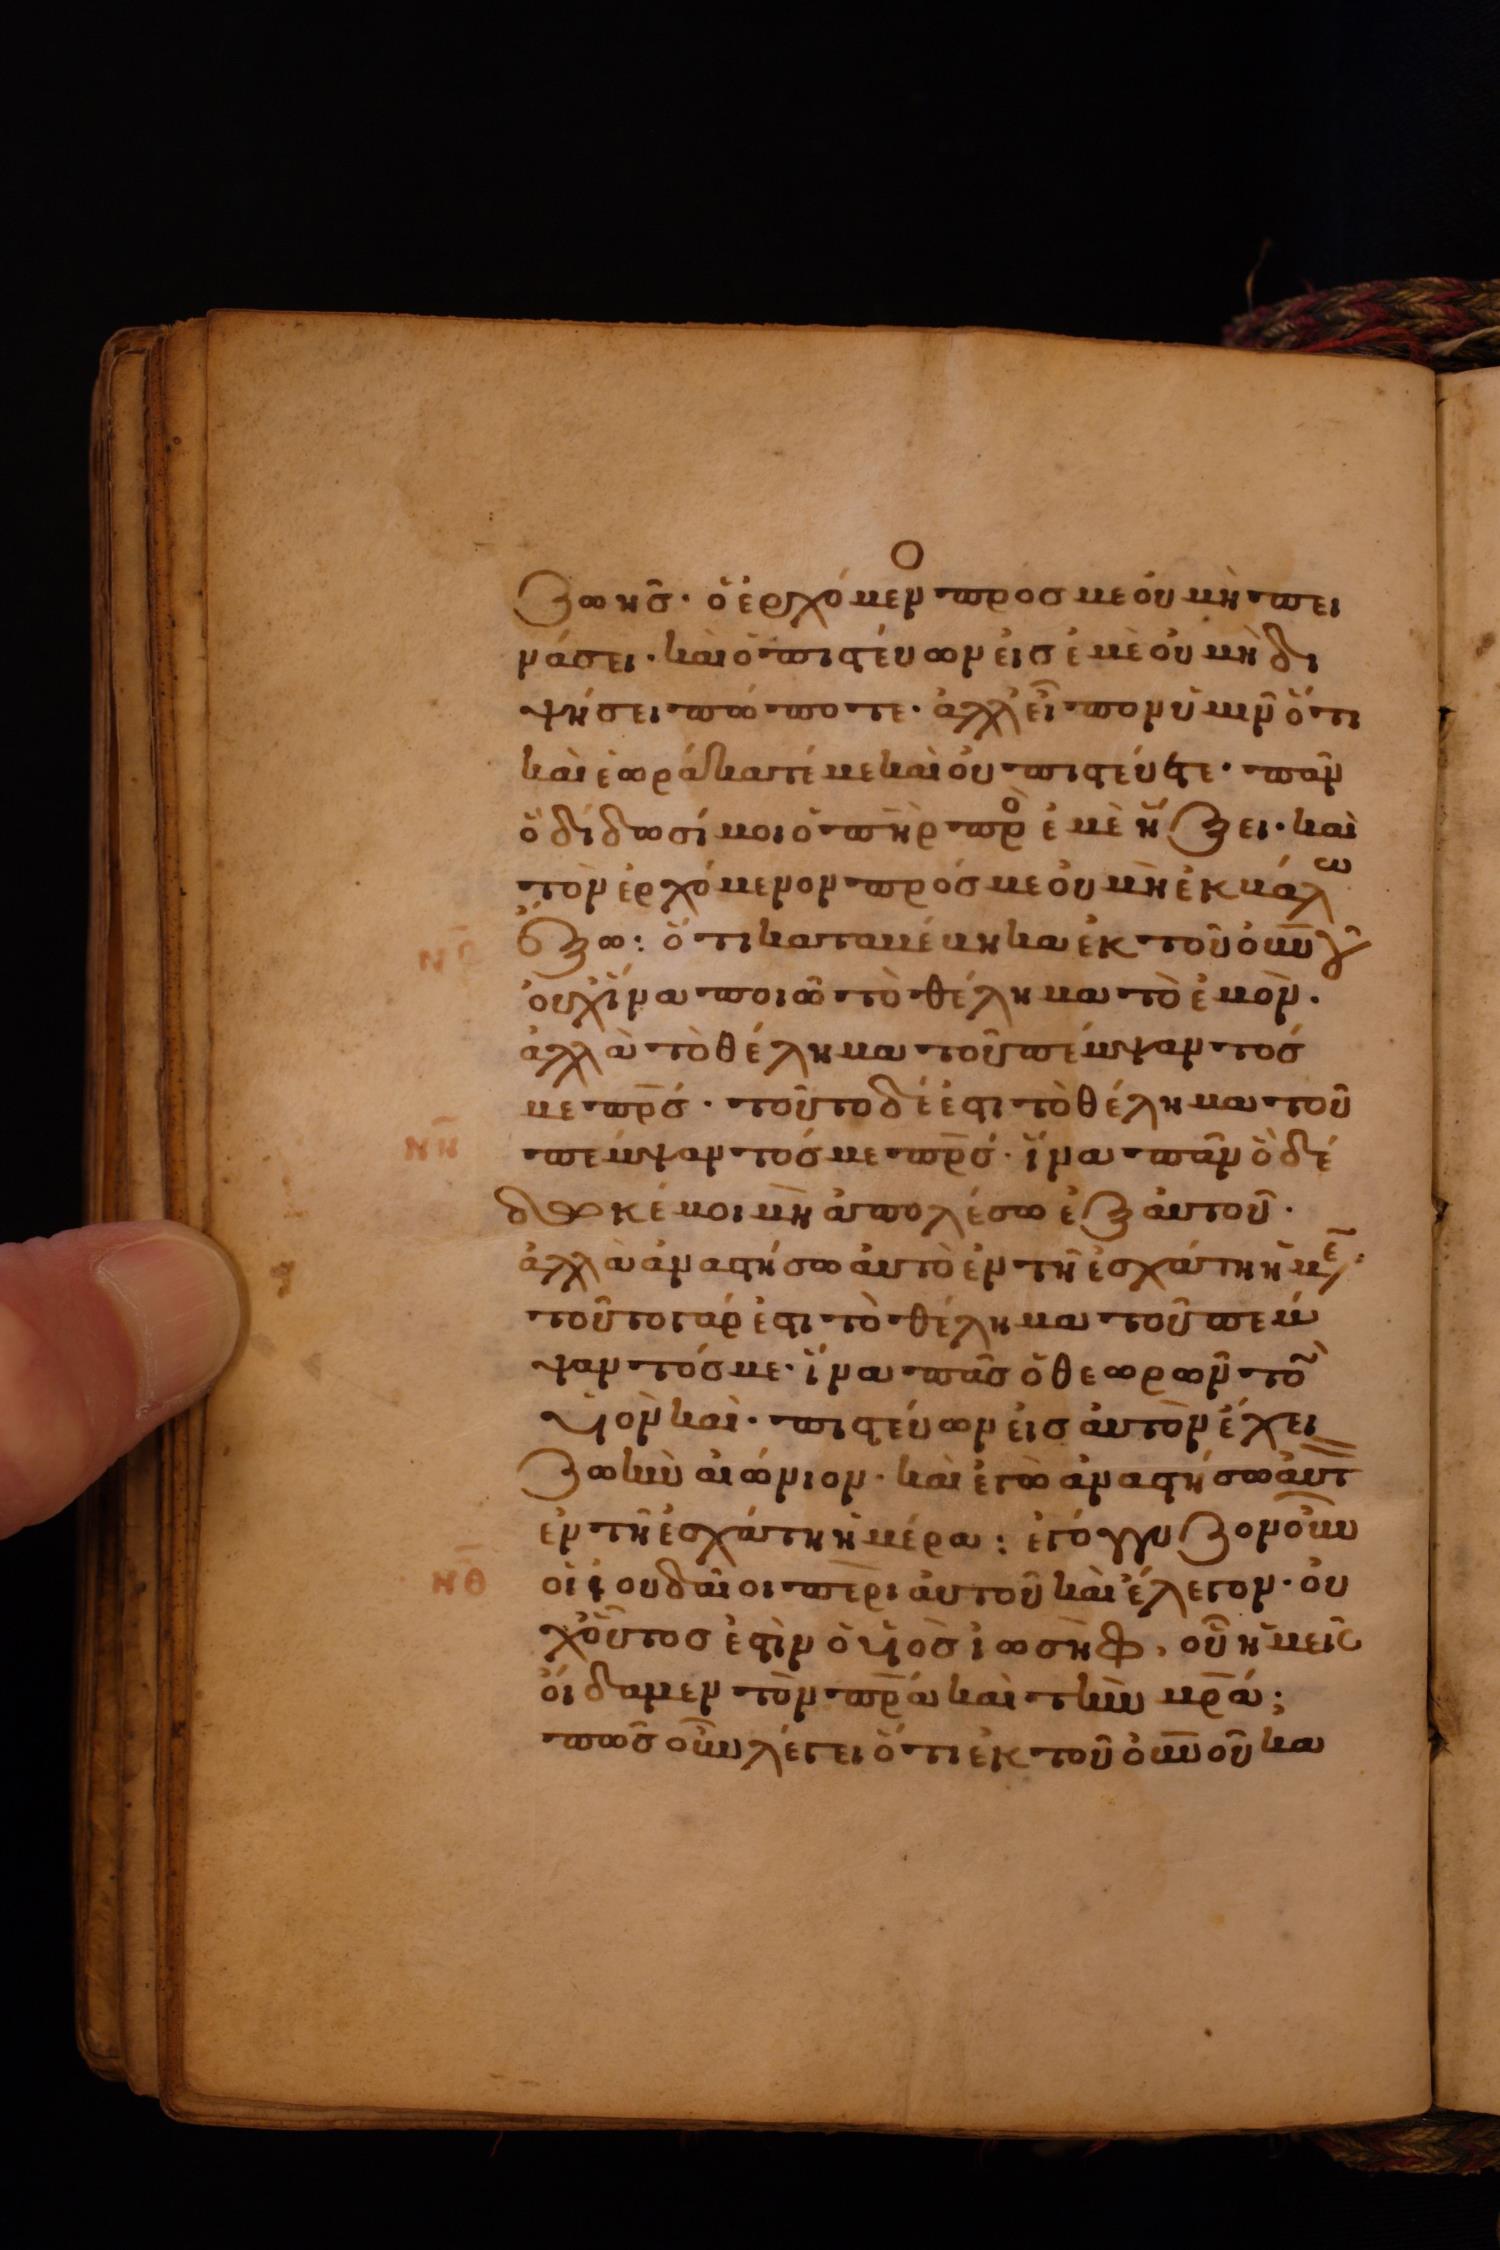 ζωῆσ· ὁ ἐρχόμεν<sup>ο</sup> προσ με οὐ μὴ πει
νάσει· καὶ ὁ πιστεύων εἰσ ἐμὲ οὐ μὴ δι
ψήσει πώποτε· ἀλλ εἶπον ὑμῖν ὅτι
καὶ ἑωράκατέ με καὶ οὐ πιστεύετε· πᾶν
ὃ δίδωσί μοι ὁ πη̅ρ πρὸ ἐμὲ ἥξει· καὶ
τὸν ἐρχόμενον πρόσ με οὐ μὴ ἐκβάλω
ἔξω: ὅτι καταβέβηκα ἐκ τοῦ οὐν̅ο̅υ̅
ν̅ζ̅
οὐχ ἵνα ποιῶ τὸ θέλημα τὸ ἐμὸν·
ἀλλὰ τὸ θέλημα τοῦ πέμψαντοσ
με πρ̅σ· τοῦτο δέ ἐστι τὸ θέλημα τοῦ
ν̅η̅
πέμψαντόσ με πρ̅σ· ἵνα πᾶν ὃ δέ
δωκέ μοι μὴ ἀπολέσω ἐξ αὐτοῦ·
ἀλλὰ ἀναστήσω αὐτὸ ἐν τῆ ἐσχάτη ἡμέ·
τοῦτο γάρ ἐστι τὸ θέλημα τοῦ πέμ
ψαντόσ με· ἵνα πᾶσ ὁ θεωρῶν τὸ
υἱὸν καὶ· πιστεύων εἰσ αὐτὸν ἔχει
ζωὴν αἰώνιον· καὶ ἐγὼ ἀναστήσω αὐτ
ἐν τῆ ἐσχάτη ἡμέρα: ἐγόγγυζον οὖν
ν̅θ̅
οἱ ἰουδαῖοι περι αὐτοῦ καὶ ἔλεγον· οὐ
χ οὗτοσ ἐστὶν ὁ υἱὸσ ἰωσὴφ, οὗ ἡμεῖσ
οἴδαμεν τὸν πρ̅α καὶ τὴν μρ̅α;
πῶσ οὖν λέγει ὅτι ἐκ τοῦ οὐν̅οῦ κα